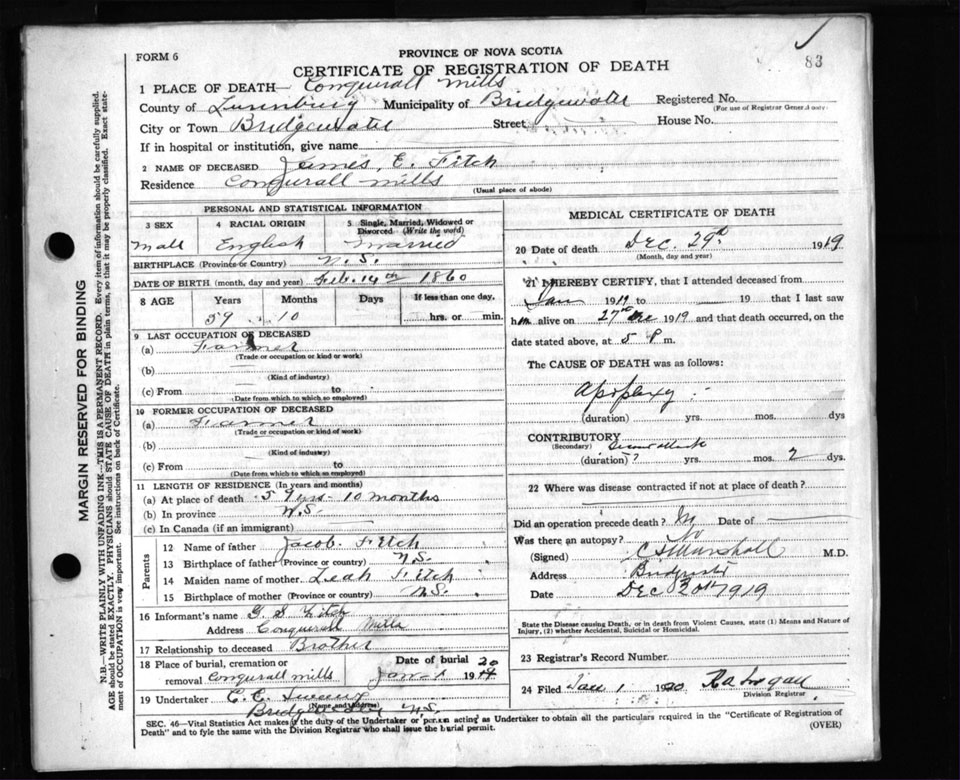 83
FORM 6
PROVINCE OF NOVA SCOTIA
CERTIFICATE OF REGISTRATION OF DEATH
1 PLACE OF DEATH Conquerall Mills
County of Lunenburg Municipality of Bridgewater Registered No.
(For use of Registrar General only.
City or Town Bridgewater Street House No.
If in hospital or institution, give name
2 NAME OF DECEASED James, E. Fitch
Residence Conquerall Mills
(Usual place of abode)
PERSONAL AND STATISTICAL INFORMATION
3 SEX 4 RACIAL ORIGIN 5 Single, Married, Widowed or Divorced (Write the word)
Male English Married
BIRTHPLACE (Province or Country) N.S.
DATE OF BIRTH (month, day and year) Feb. 14th 1860
8 AGE Years Months Days If less than one day,
59 10 hrs. or min.
9 LAST OCCUPATION OF DECEASED
(a) Farmer
(Trade or occupation or kind or work)
(b)
(Kind of industry)
(c) From to
(Date from which to which so employed)
10 FORMER OCCUPATION OF DECEASED
(a) Farmer
(Trade or occupation or kind of work)
(b)
(Kind of industry)
(c) From to
(Date from which to which so employed)
11 LENGTH OF RESIDENCE (In years and months)
(a) At place of death 59 yrs - 10 months
(b) In province N.S.
(c) In Canada (if an immigrant)
Parents
12 Name of father Jacob. Fitch
13 Birthplace of father (Province or country) N.S.
14 Maiden name of mother Leah Fitch
15 Birthplace of mother (Province or country) N.S.
16 Informant's name S. Fitch
Address Conquerall Mills
17 Relationship to deceased Brother
18 Place of burial, cremation or removal Conquerall Mills Date of burial Jan 1 1920
19 Undertaker C. E.
(Name and address)
Bridgewater N.S.
MEDICAL CERTIFICATE OF DEATH
20 Date of death Dec. 29th 1919
(Month, day and year)
21 I HEREBY CERTIFY, that I attended deceased from
Jan 1919 to 19 that I last saw
him alive on 27th Dec 1919 and that death occurred, on the
date stated above, at 5 P m.
The CAUSE OF DEATH was as follows:
Apoplexy
(duration) yrs. mos. dys
CONTRIBUTORY
(Secondary)
(duration)? yrs. mos. 2 dys.
22 Where was disease contracted if not at place of death?
Did an operation precede death? No Date of
Was there an autopsy? No
(Signed) C S Marshall M.D.
Address Bridgewater
Date Dec 30th 1919
State the Disease causing Death, or in death from Violent Causes, state (1) Means and Nature of Injury, (2) whether Accidental, Suicidal or Homicidal.
23 Registrar's Record Number
24 Filed Jan 1 1920
Division Registrar
SEC. 46—Vital Statistics Act makes it the duty of the Undertaker or person acting as Undertaker to obtain all the particulars required in the "Certificate of Registration of
Death" and to fyle the same with the Division Registrar who shall issue the burial permit. (OVER)
MARGIN RESERVED FOR BINDING
N.B.—WRITE PLAINLY WITH UNFADING INK—THIS IS A PERMANENT RECORD. Every item of information should be carefully supplied.
AGE should be stated EXACTLY. PHYSICIANS should STATE CAUSE OF DEATH in plain terms, so that it may be properly classified. Exact statement of OCCUPATION is very important. See instructions on back of Certificate.